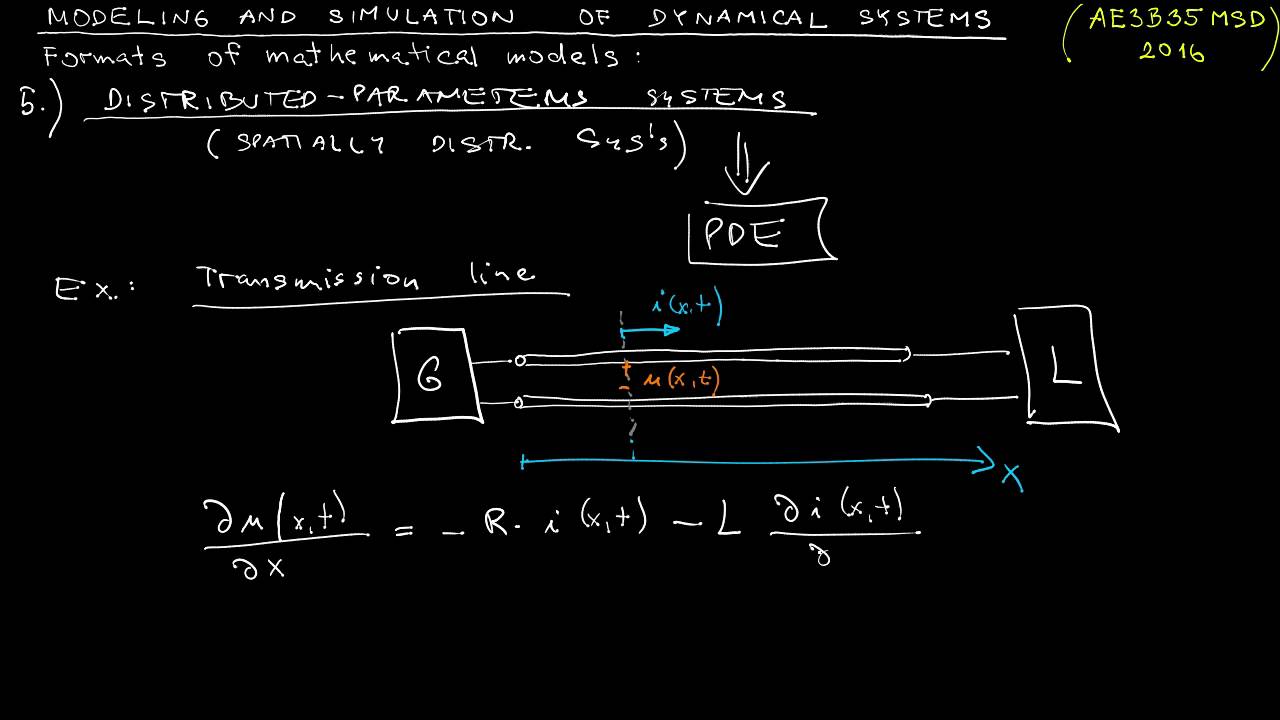 MODELING AND SIMULATION OF DYNAMICAL SYSTEMS
(AE3B35MSD)
2016
Formats of mathematical models:
5.) DISTRIBUTED-PARAMETERS SYSTEMS
(SPATIALLY DISTR. Sys's)
PDE
Ex.: Transmission line
i(x,t)
G
+
-
u(x,t)
L
x
∂u(x,t)/∂x = - R. i(x,t) - L ∂i(x,t)/∂